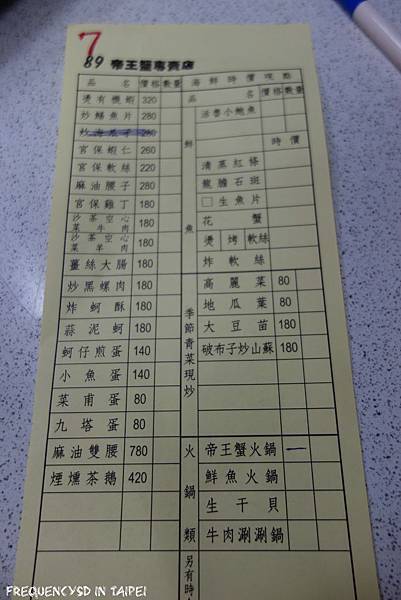 7
89 帝王蟹專賣店
品名 價格 數量 海鮮時價現點
燙有機蝦 320 品名 價格 數量
炒鱔魚片 280 活魯小鮑魚
炒海瓜子 280 時價
宮保蝦仁 260 鮮魚 清蒸紅條
宮保軟絲 220 龍膽石斑
麻油腰子 280 □生魚片
宮保雞丁 180 花蟹
沙茶空心菜牛肉 180 燙 烤 軟絲
沙茶空心菜羊肉 180 炸軟絲
薑絲大腸 180 高麗菜 80
炒黑螺肉 180 季節青菜現炒 地瓜葉 80
炸蚵酥 180 大豆苗 180
蒜泥蚵 180 破布子炒山蘇 180
蚵仔煎蛋 140
小魚蛋 140
菜甫蛋 80
九塔蛋 80
麻油雙腰 780 火鍋類 帝王蟹火鍋 一
煙燻茶鵝 420 鮮魚火鍋
生干貝
牛肉涮涮鍋
另有時
FREQUENCYSD IN TAIPEI